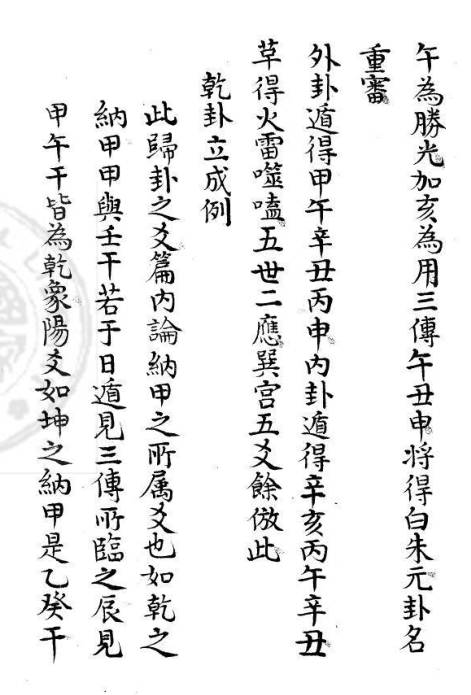 午為勝光加亥為用三傳午丑申将得白朱元卦名
重審
外卦遁得甲午辛丑丙申内卦遁得辛亥丙午辛丑
草得火雷噬嗑五世二應巽宫五爻餘倣此
乾卦立成例
此歸卦之爻篇内論納甲之所属爻也如乾之
納甲甲與壬干若于日遁見三傳所臨之辰見
甲午干皆為乾象陽爻如坤之納甲是乙癸干